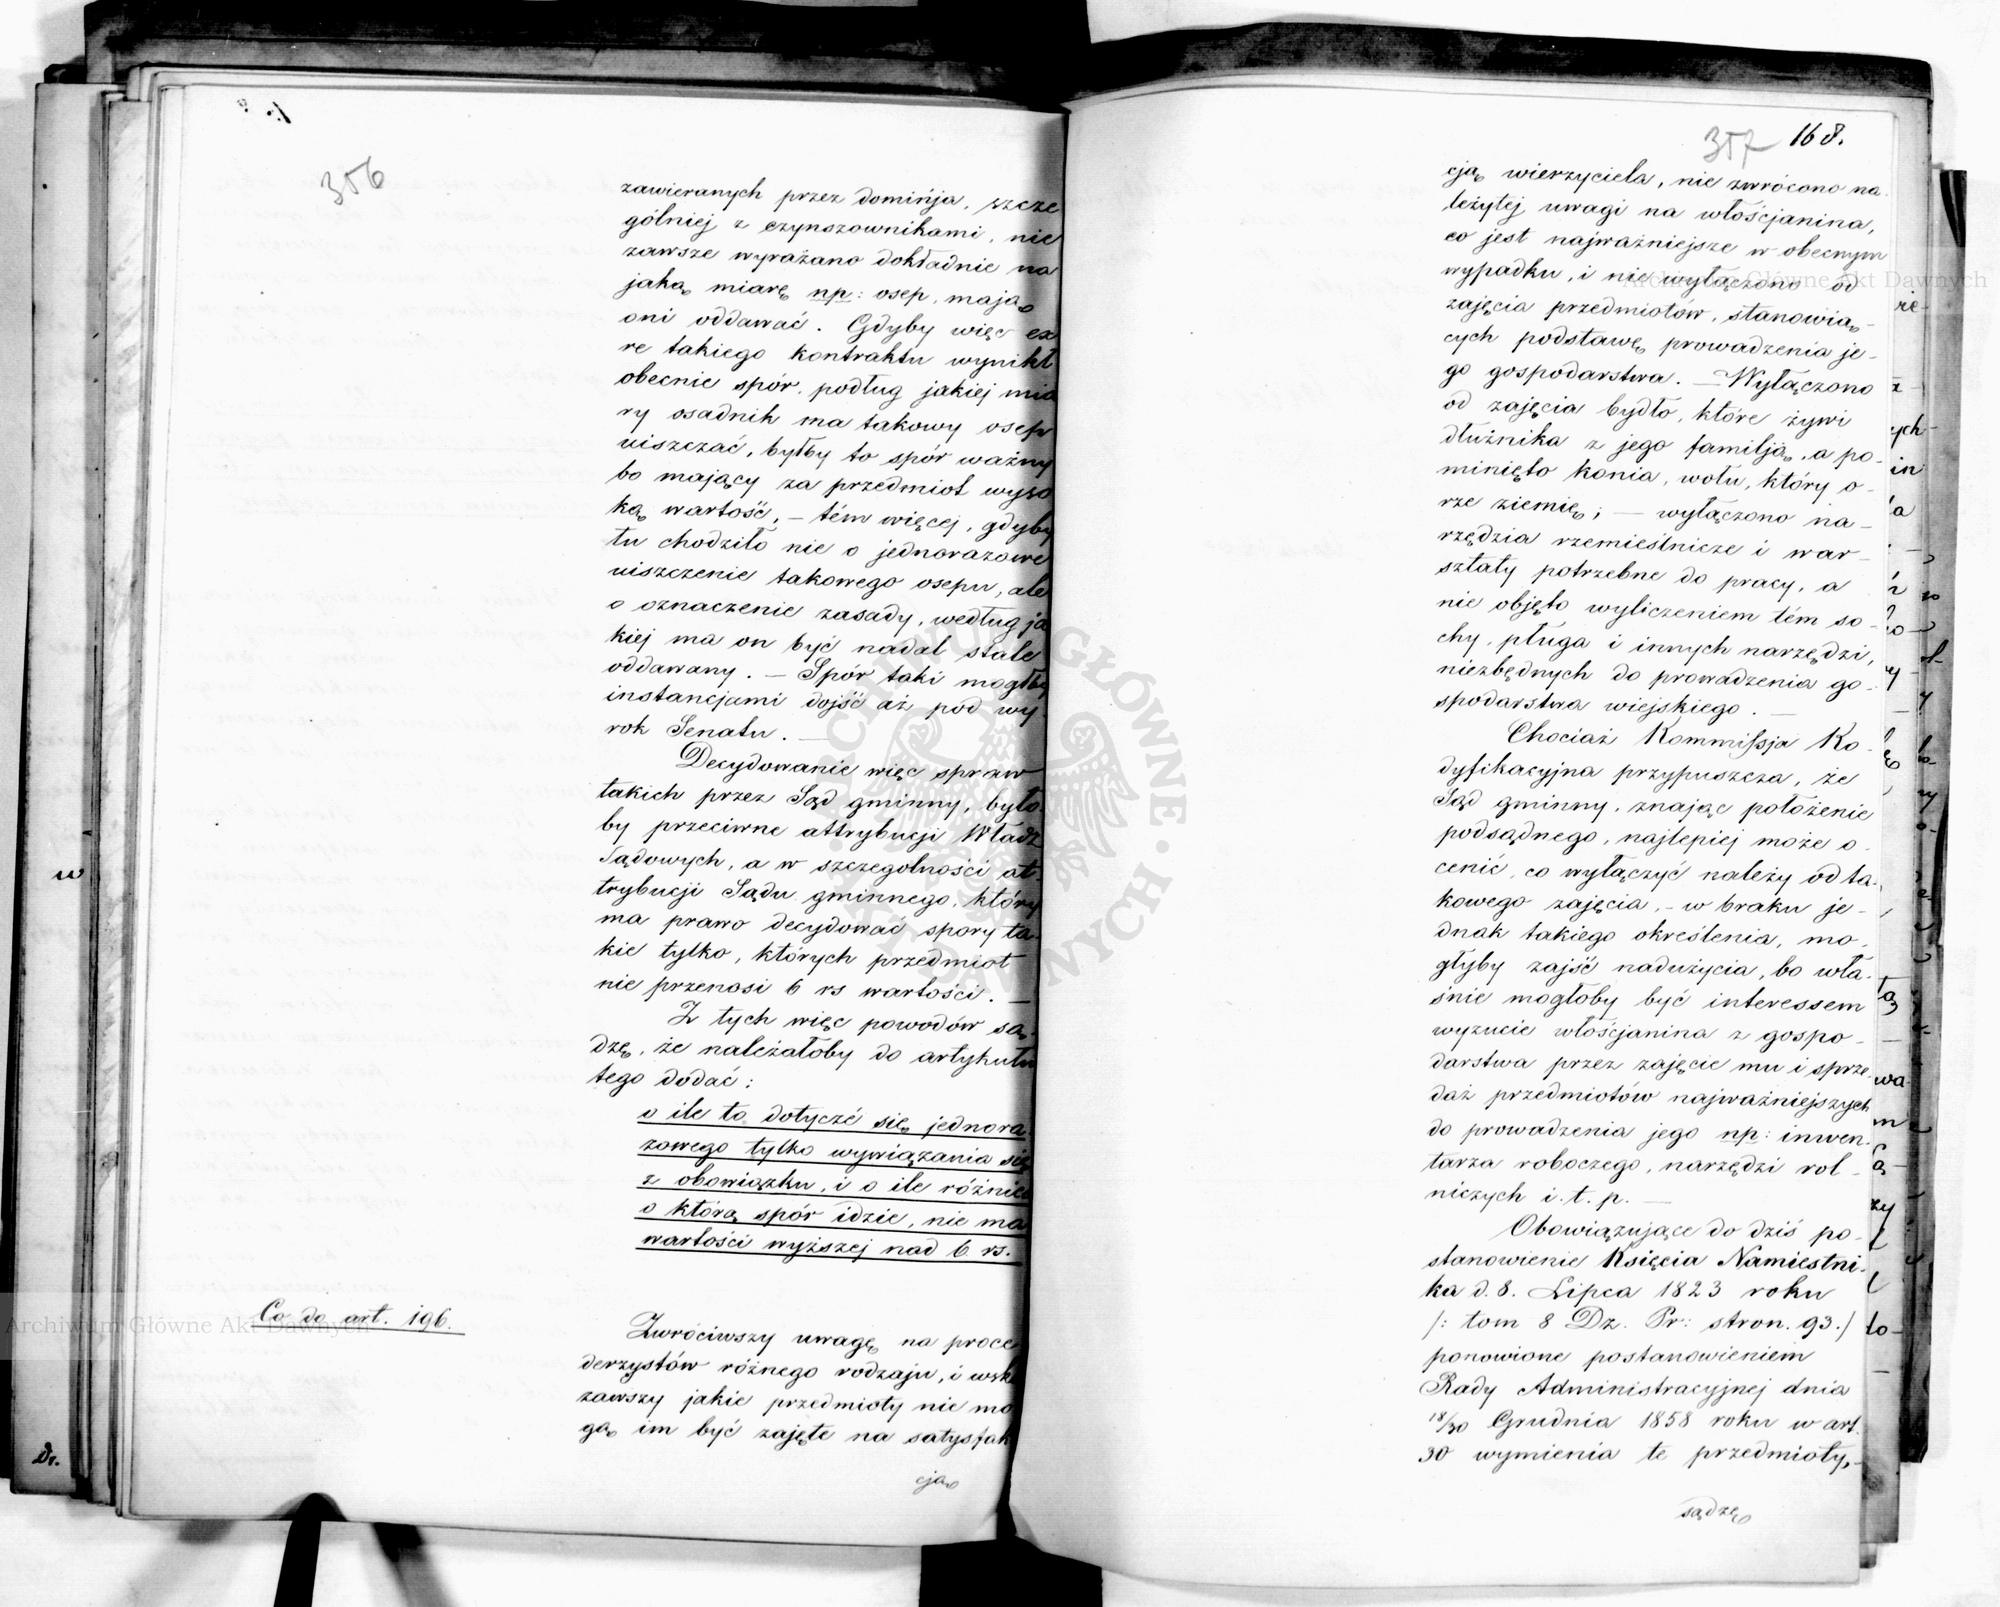 356
zawieranych przez dominja, szcze
gólniej z czynszownikami, nie
zawsze wyrażano dokładnie na
jaką miarę np: osep, mają
oni oddawać. Gdyby więc ex
re takiego kontraktu wynikł
obecnie spór, podług jakiej mia
ry osadnik ma takowy osep
uiszczać, byłby to spór ważny
bo mający za przedmiot wyso
ką wartość, – tém więcej, gdyby
tu chodziło nie o jednorazowe
uiszczenie takowego osepu, ale
o oznaczenie zasady, według ja
kiej ma on być nadal stale
oddawany. – Spór taki mogłby
instancjami dojść aż pod wy
rok Senatu. –
Decydowanie więc spraw
takich przez Sąd gminny, było
by przeciwne attrybucji Władz
Sądowych, a w szczególności at-
trybucji Sądu gminnego, który
ma prawo decydować spory ta-
kie tylko, których przedmiot
nie przenosi 6 rs wartości. –
Z tych więc powodów są-
dzę, że należałoby do artykułu
tego dodać:
o ile to dotyczé się jednora-
zowego tylko wywiązania się
z obowiązku, i o ile różnica
o którą spór idzie, nie ma
wartości wyższej nad 6 rs.
Co do art. 196.
Zwróciwszy uwagę na proce
derzystów różnego rodzaju, i wska
zawszy jakie przedmioty nie mo
gą im być zajęte na satysfak
cją
357 168.
cją wierzyciela, nie zwrócono na-
leżytej uwagi na włościanina,
co jest najważniejsze w obecnym
wypadku, i nie wyłączono od
zajęcia przedmiotów, stanowią-
cych podstawę prowadzenia je-
go gospodarstwa. – Wyłączono
od zajęcia bydło, które żywi
dłużnika z jego familją, a po-
minięto konia, wołu, który o-
rze ziemię; – wyłączono na-
rzędzia rzemieślnicze i war-
sztaty potrzebne do pracy, a
nie objęto wyliczeniem tém so-
chy, pługa i innych narzędzi,
niezbędnych do prowadzenia go-
spodarstwa wiejskiego. –
Chociaż Kommissja Ko-
dyfikacyjna przypuszcza, że
Sąd gminny, znając położenie
podsądnego, najlepiej może o-
cenić, co wyłączyć należy od ta-
kowego zajęcia, – w braku je-
dnak takiego określenia, mo-
głyby zajść nadużycia, bo wła-
śnie mogłoby być interessem
wyzucie włościanina z gospo-
darstwa przez zajęcie mu i sprze-
daż przedmiotów najważniejszych
do prowadzenia jego np: inwen-
tarza roboczego, narzędzi rol-
niczych i. t. p. –
Obowiązujące do dziś po-
stanowienie Księcia Namiestni-
ka d. 8. Lipca 1823 roku
/: tom 8 Dz. Pr: stron. 93./
ponowione postanowieniem
Rady Administracyjnej dnia
18/30 Grudnia 1858 roku w art.
30 wymienia te przedmioty,
sądzę
Archiwum Główne Akt Dawnych
Archiwum Główne Akt Dawnych
ARCHIWUM GŁÓWNE AKT DAWNYCH